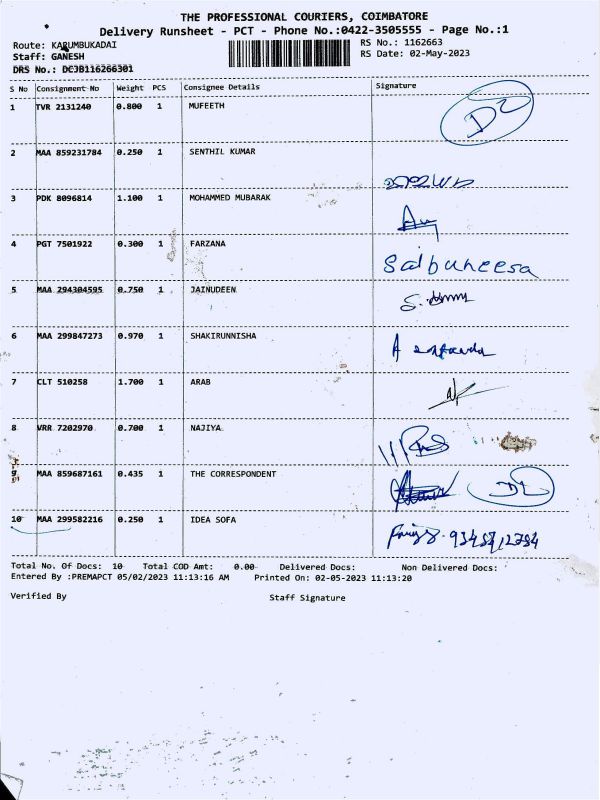 THE PROFESSIONAL COURIERS, COIMBATORE
Delivery Runsheet - PCT - Phone No.:0422-3505555 - Page No.:1
Route: KARUMBUKADAI
RS No.: 1162663
Staff: GANESH
RS Date: 02-May-2023
DRS No.: DCJB116266301
S No Consignment No Weight PCS Consignee Details Signature
1 TVR 2131240 0.800 1 MUFEETH
2 MAA 859231784 0.250 1 SENTHIL KUMAR
3 PDK 8096814 1.100 1 MOHAMMED MUBARAK
4 PGT 7501922 0.300 1 FARZANA Salbuneesa
5 MAA 294304595 0.750 1 JAINUDEEN
6 MAA 299847273 0.970 1 SHAKIRUNNISHA
7 CLT 510258 1.700 1 ARAB
8 VRR 7202970 0.700 1 NAJIYA.
9 MAA 859687161 0.435 1 THE CORRESPONDENT
10 MAA 299582216 0.250 1 IDEA SOFA
Total No. Of Docs: 10 Total COD Amt: 0.00 Delivered Docs: Non Delivered Docs:
Entered By :PREMAPCT 05/02/2023 11:13:16 AM Printed On: 02-05-2023 11:13:20
Verified By Staff Signature